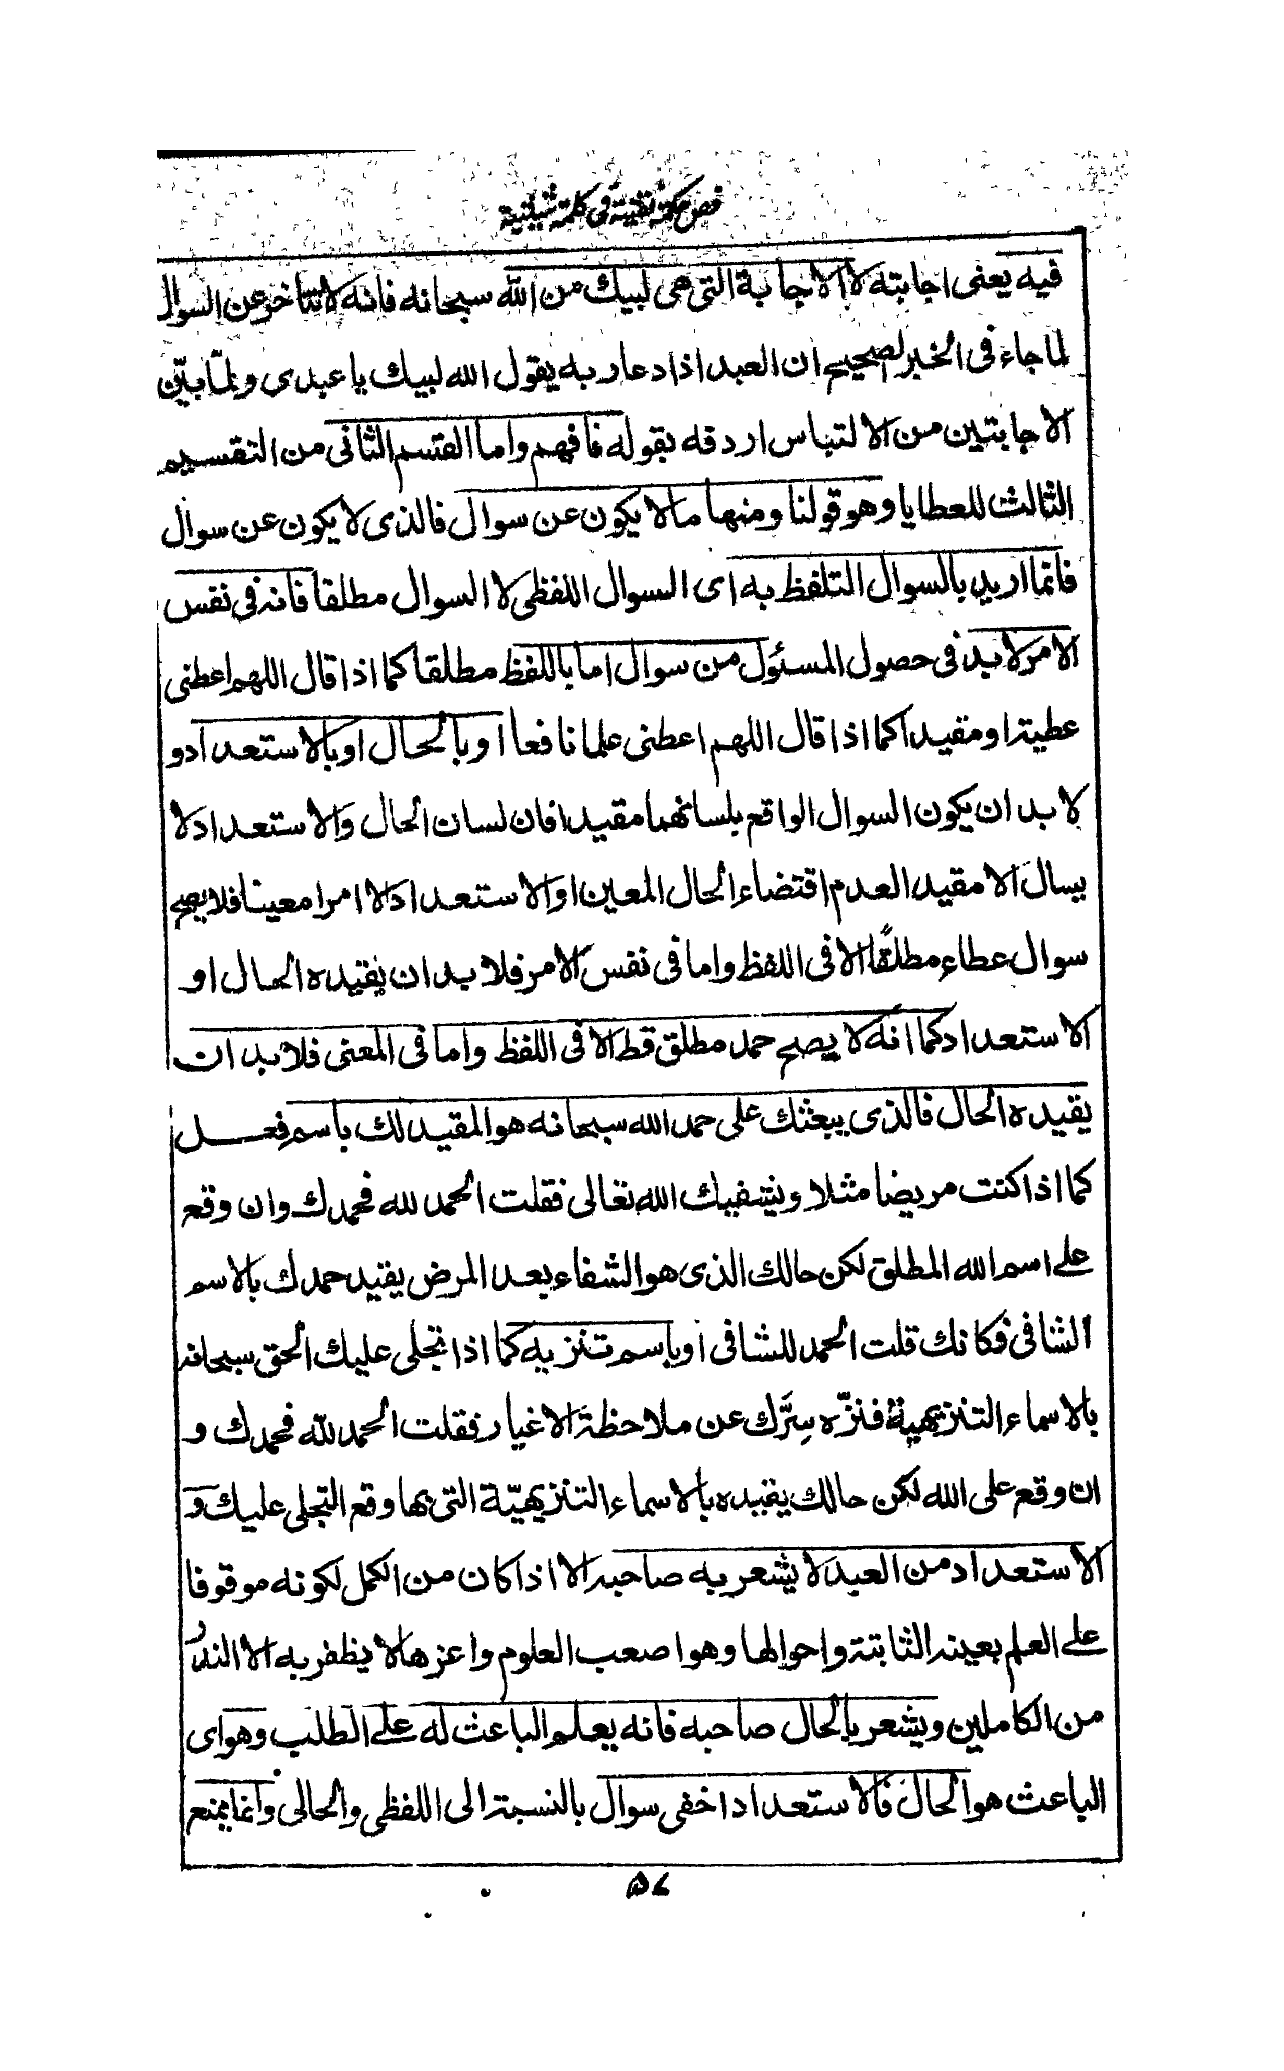 فص حكمة نفثية فى كلمة شيثية
فيه يعنى اجابته لا الاجابة التى هى لبيك من الله سبحانه فانه لا تتاخر عن السوال
لما جاء فى الخبر الصحيح ان العبد اذا دعا ربه يقول الله لبيك يا عبدى ولمّا بيّن
الاجابتين من الالتباس اردفه بقوله فافهم واما القسم الثانى من التقسيم
الثالث للعطايا وهو قولنا ومنها ما لا يكون عن سوال فالذى لا يكون عن سوال
فانما اريد بالسوال التلفظ به اى السوال اللفظى لا السوال مطلقا فانه فى نفس
الامر لا بد فى حصول المسئول من سوال اما باللفظ مطلقا كما اذا قال اللهم اعطنى
عطية او مقيدا كما اذا قال اللهم اعطنى علما نافعا او بالحال او بالاستعداد و
لا بد ان يكون السوال الواقع بلسانهما مقيدا فان لسان الحال والاستعداد لا
يسال الا مقيد العدم اقتضاء الحال المعين او الاستعداد الا امرا معينا فلا يصح
سوال عطاء مطلقًا الا فى اللفظ واما فى نفس الامر فلا بد ان يقيده الحال او
الاستعداد كما انه لا يصح حمد مطلق قط الا فى اللفظ واما فى المعنى فلا بد ان
يقيده الحال فالذى يبعثك على حمد الله سبحانه هو المقيد لك باسم فعل
كما اذا كنت مريضا مثلا ويشفيك الله تعالى فقلت الحمد لله فحمدك وان وقع
على اسم الله المطلق لكن حالك الذى هو الشفاء بعد المرض يقيد حمدك بالاسم
الشافى فكانك قلت الحمد للشافى او باسم تنزيه كما اذا تجلى عليك الحق سبحانه
بالاسماء التنزيهية فنزّه سِرَّك عن ملاحظة الاغيار فقلت الحمد لله فحمدك و
ان وقع على الله لكن حالك يقيده بالاسماء التنزيهيّة التى بها وقع التجلى عليك و
الاستعداد من العبد لا يشعر به صاحبه الا اذا كان من الكمل لكونه موقوفا
على العلم بعينه الثابتة واحوالها وهو اصعب العلوم واعزها لا يظفر به الا الندر
من الكاملين ويشعر بالحال صاحبه فانه يعلم الباعث له على الطلب وهو اى
الباعث هو الحال فالاستعداد اخفى سوال بالنسبة الى اللفظى والحالى وانما يمنع
۵۷